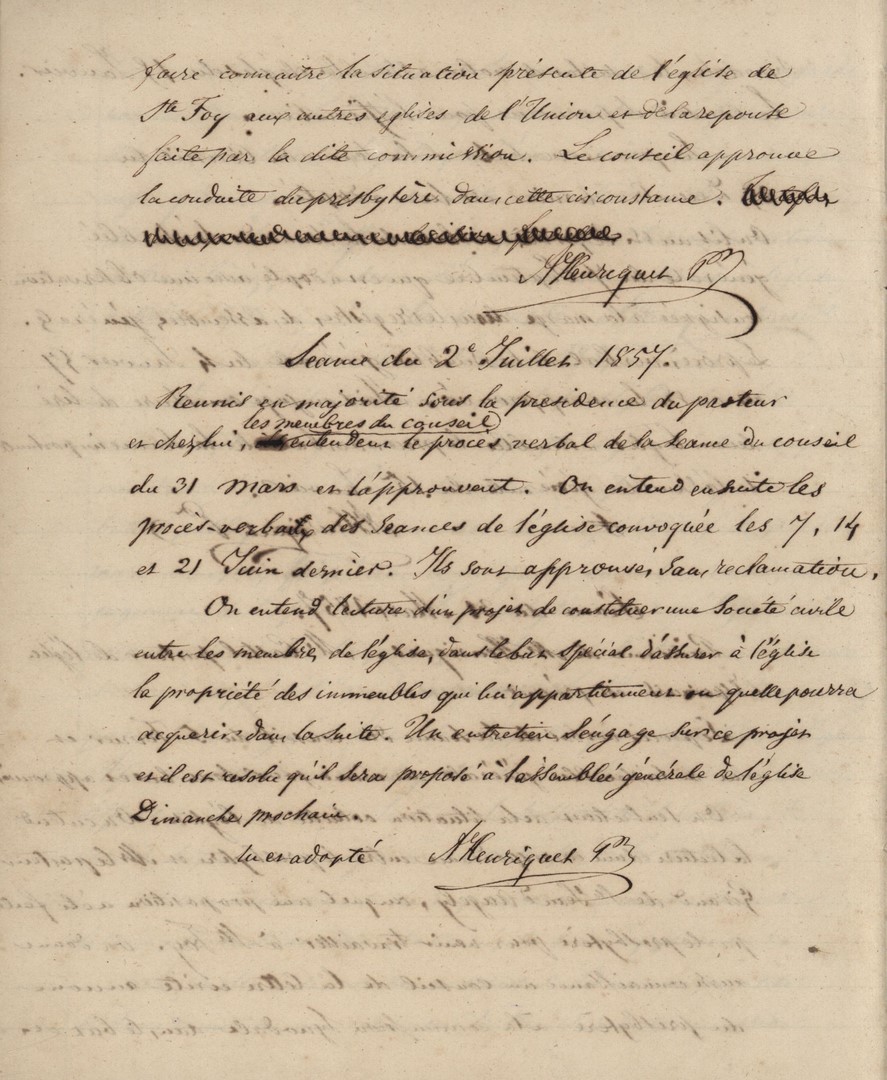 faire connaitre la situation présente de l'église de
Ste Foy aux autres églises de l'Union et de la reponse
faite par la dite commission. Le conseil approuve
la conduite du presbytère dans cette circonstance.
A Henriquet Pr
Seance du 2e Juillet 1857.
Reunis en majorité sous la presidence du pasteur
les membres du conseil
et chez lui, entendent le procès verbal de la seance du conseil
du 31 mars et l'approuvent. On entend ensuite les
procès-verbaux des seances de l'église convoquée les 7, 14
et 21 Juin dernier. Ils sont approuvés sans reclamation.
On entend lecture d'un projet de constituer une Société civile
entre les membres de l'église, dans le but spécial d'assurer à l'église
la propriété des immeubles qui lui appartiennent ou qu'elle pourra
acquerir dans la suite. Un entretien s'engage sur ce projet
et il est resolu qu'il sera proposé à l'assemblée générale de l'église
Dimanche prochain
lu et adopté A Henriquet Pr